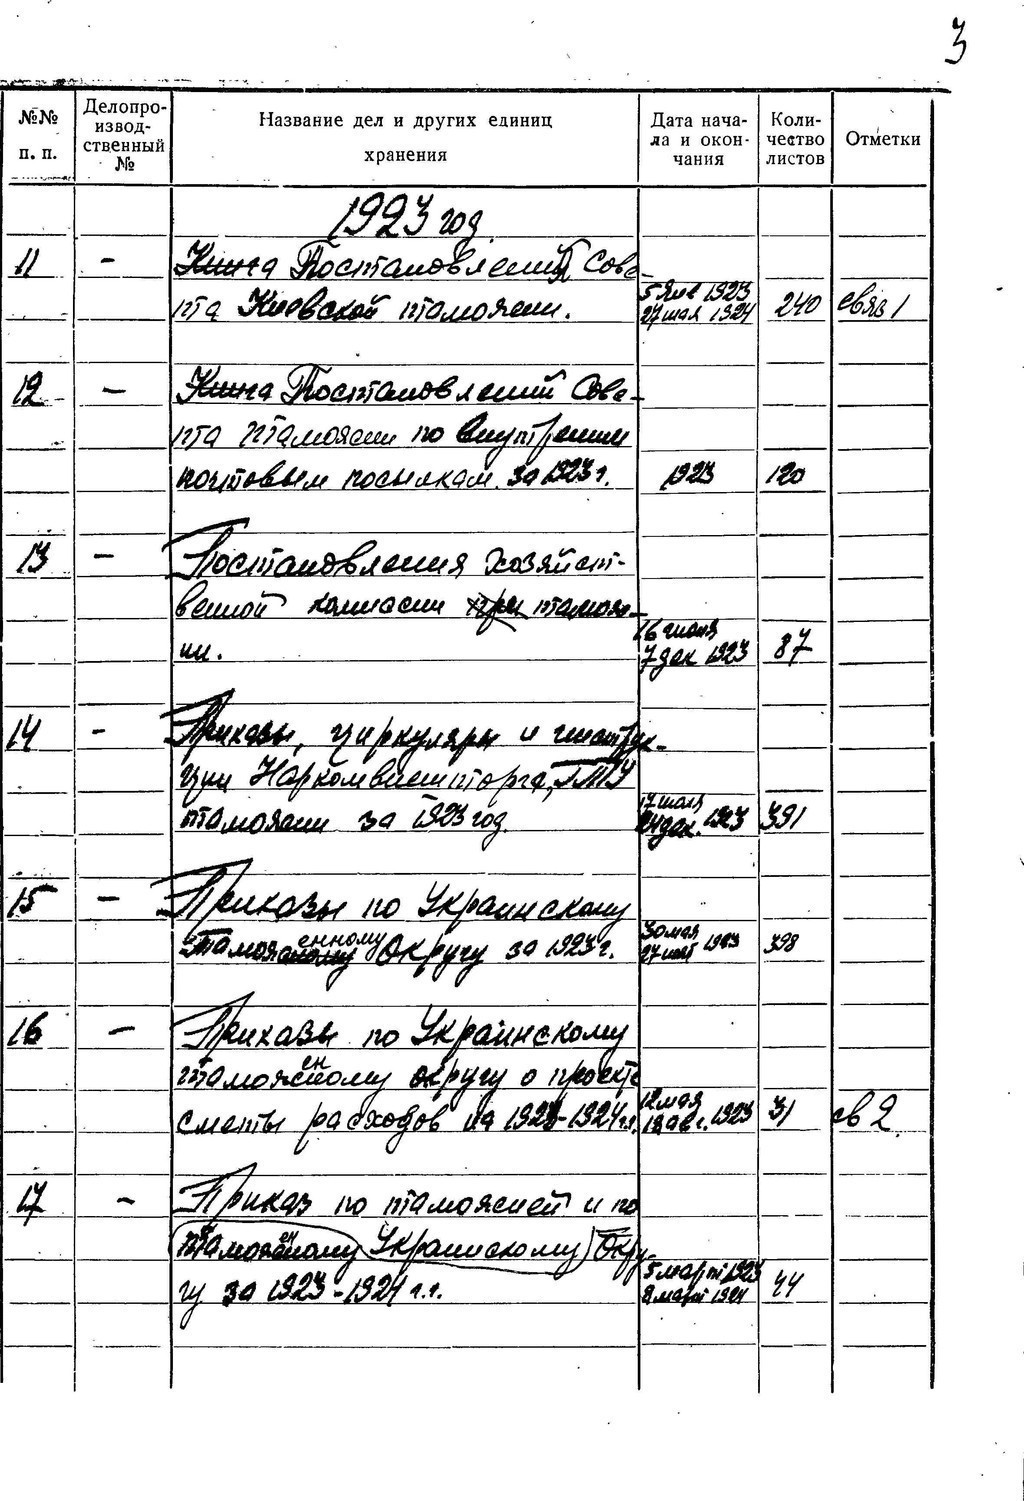 3
№№ п. п.
Делопроизводственный №
Название дел и других единиц хранения
Дата начала и окончания
Количество листов
Отметки
1923 год
11 - Книга Постановлений Сове-
та Киевской таможни. 5 янв 1923 27 мая 1924 240 связ 1
12 - Книга Постановлений Сове-
та таможни по внутренним
почтовым посылкам за 1923 г. 1923 120
13 - Постановления хозяйст-
венной комиссии при тамож-
ни. 16 июня 7 дек 1923 87
14 - Приказы, циркуляры и инструк-
ции Наркомвнешторга, ГТУ
таможни за 1923 год. 24 дек. 1923 391
15 - Приказы по Украинскому
таможенному округу за 1923 г. 30 мая 1923 398
16 - Приказы по Украинскому
таможенному округу о проекте
сметы расходов на 1923-1924 г.г. 12 мая 18 авг. 1923 31 св 2
17 - Приказ по таможней и по
таможенному Украинскому Окру-
гу за 1923-1924 г.г. 5 март 1923 8 март 1924 44